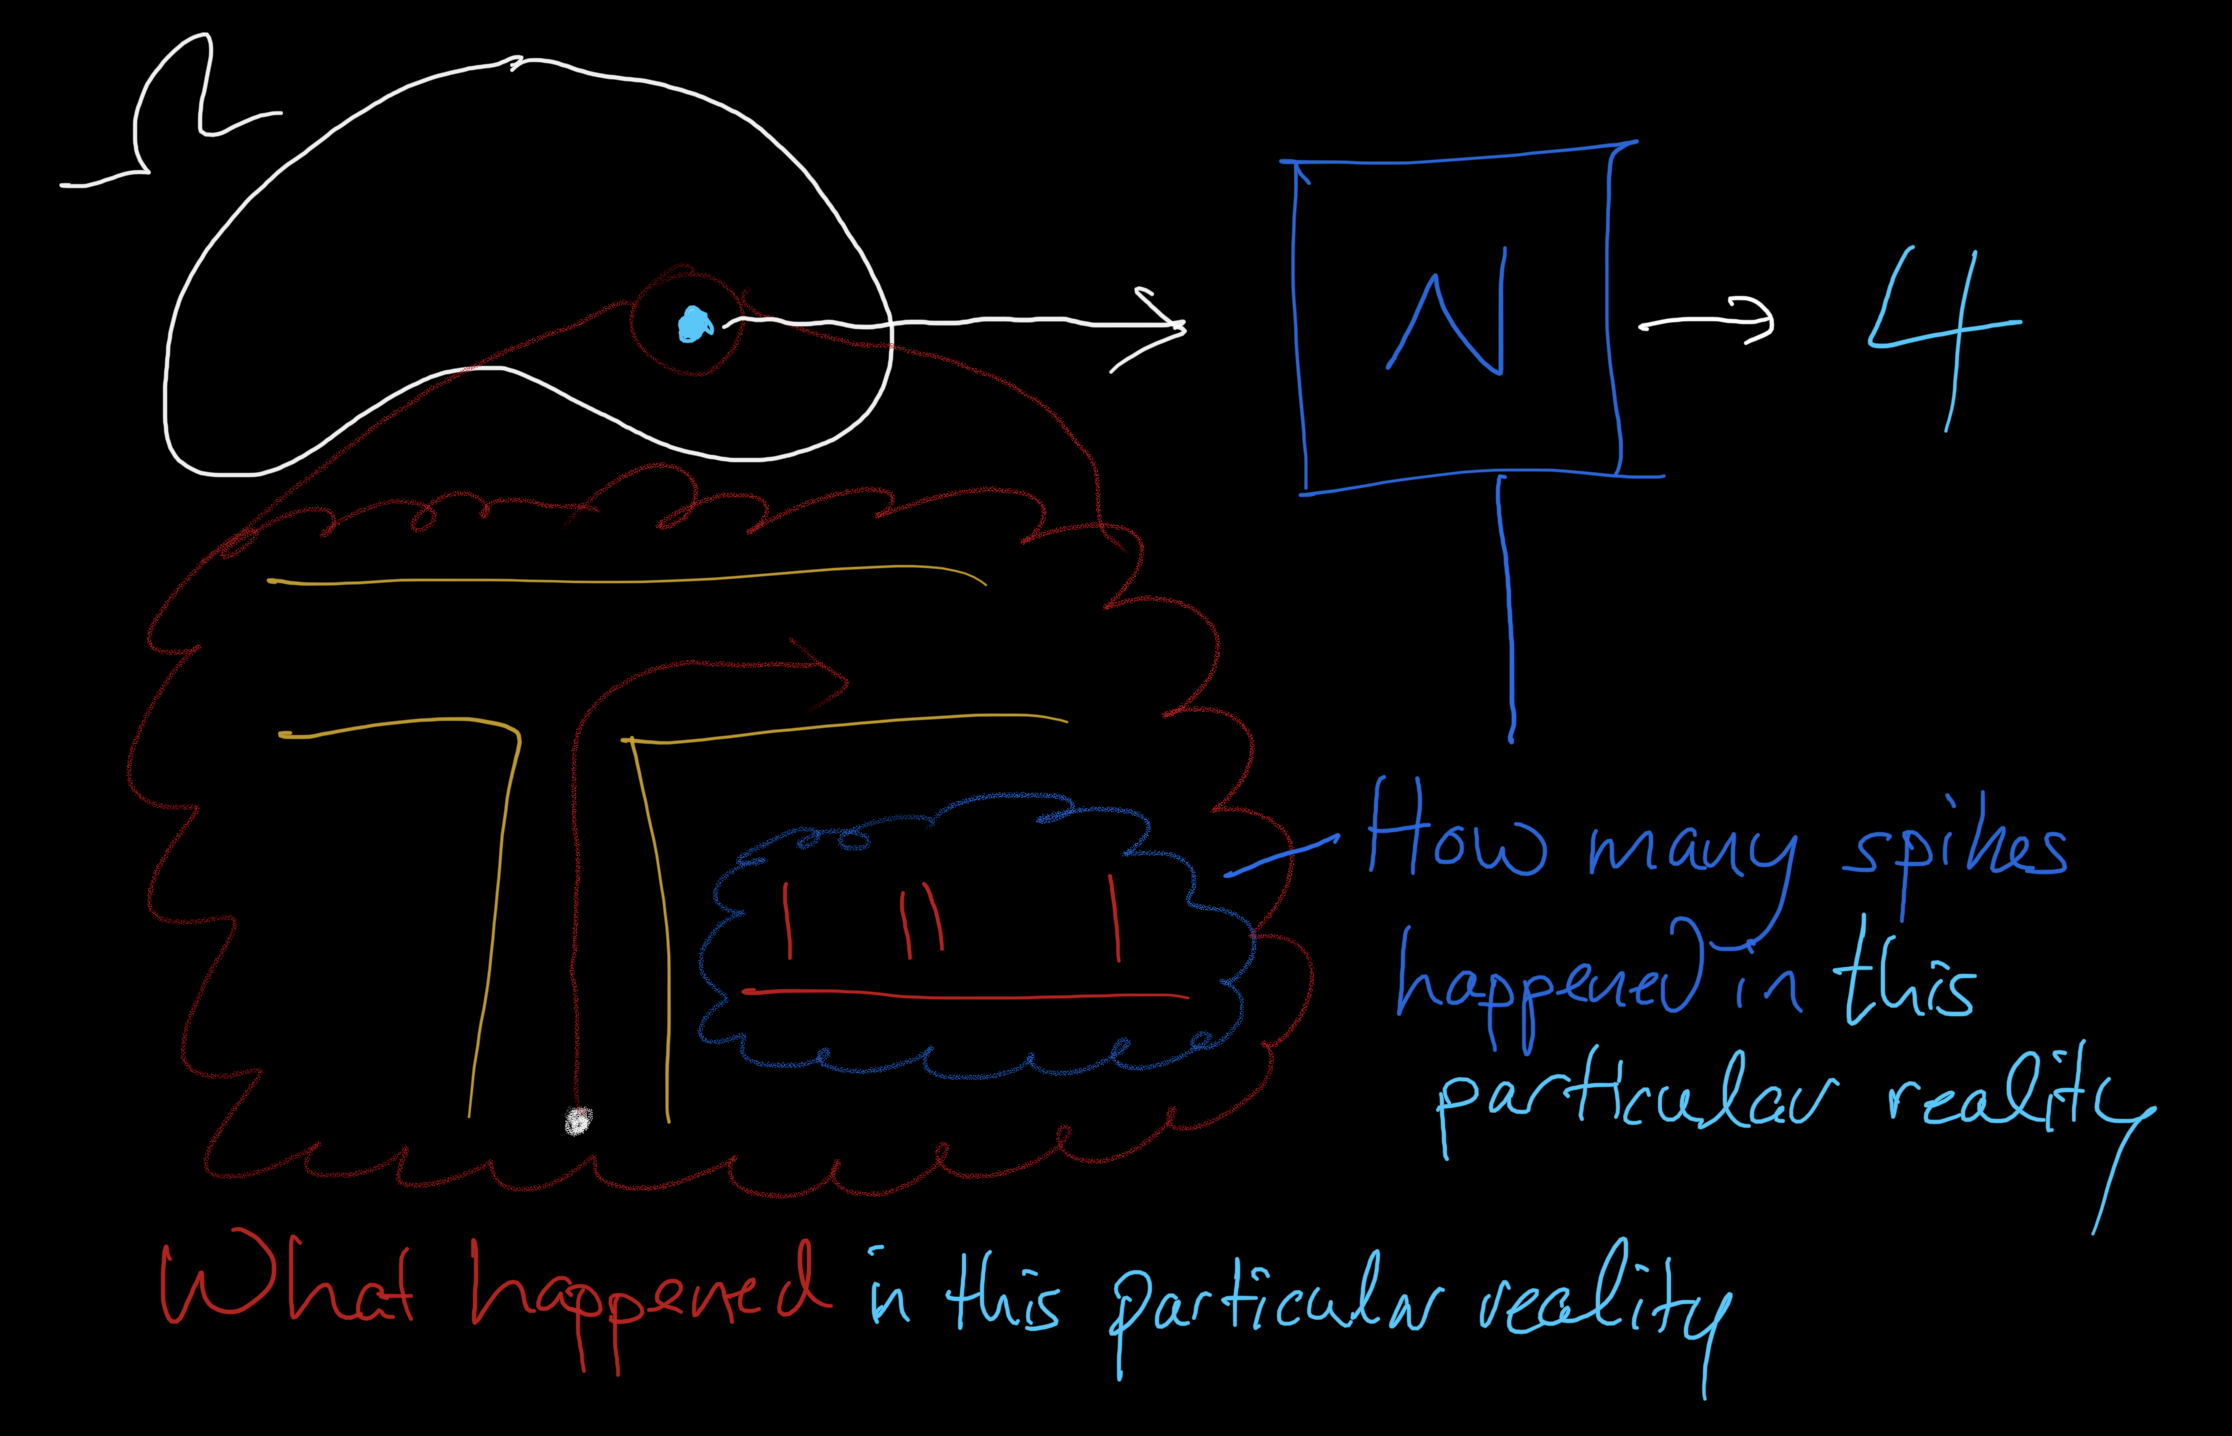 Ω
N
4
How many spikes
happened in this
particular reality
What happened in this particular reality